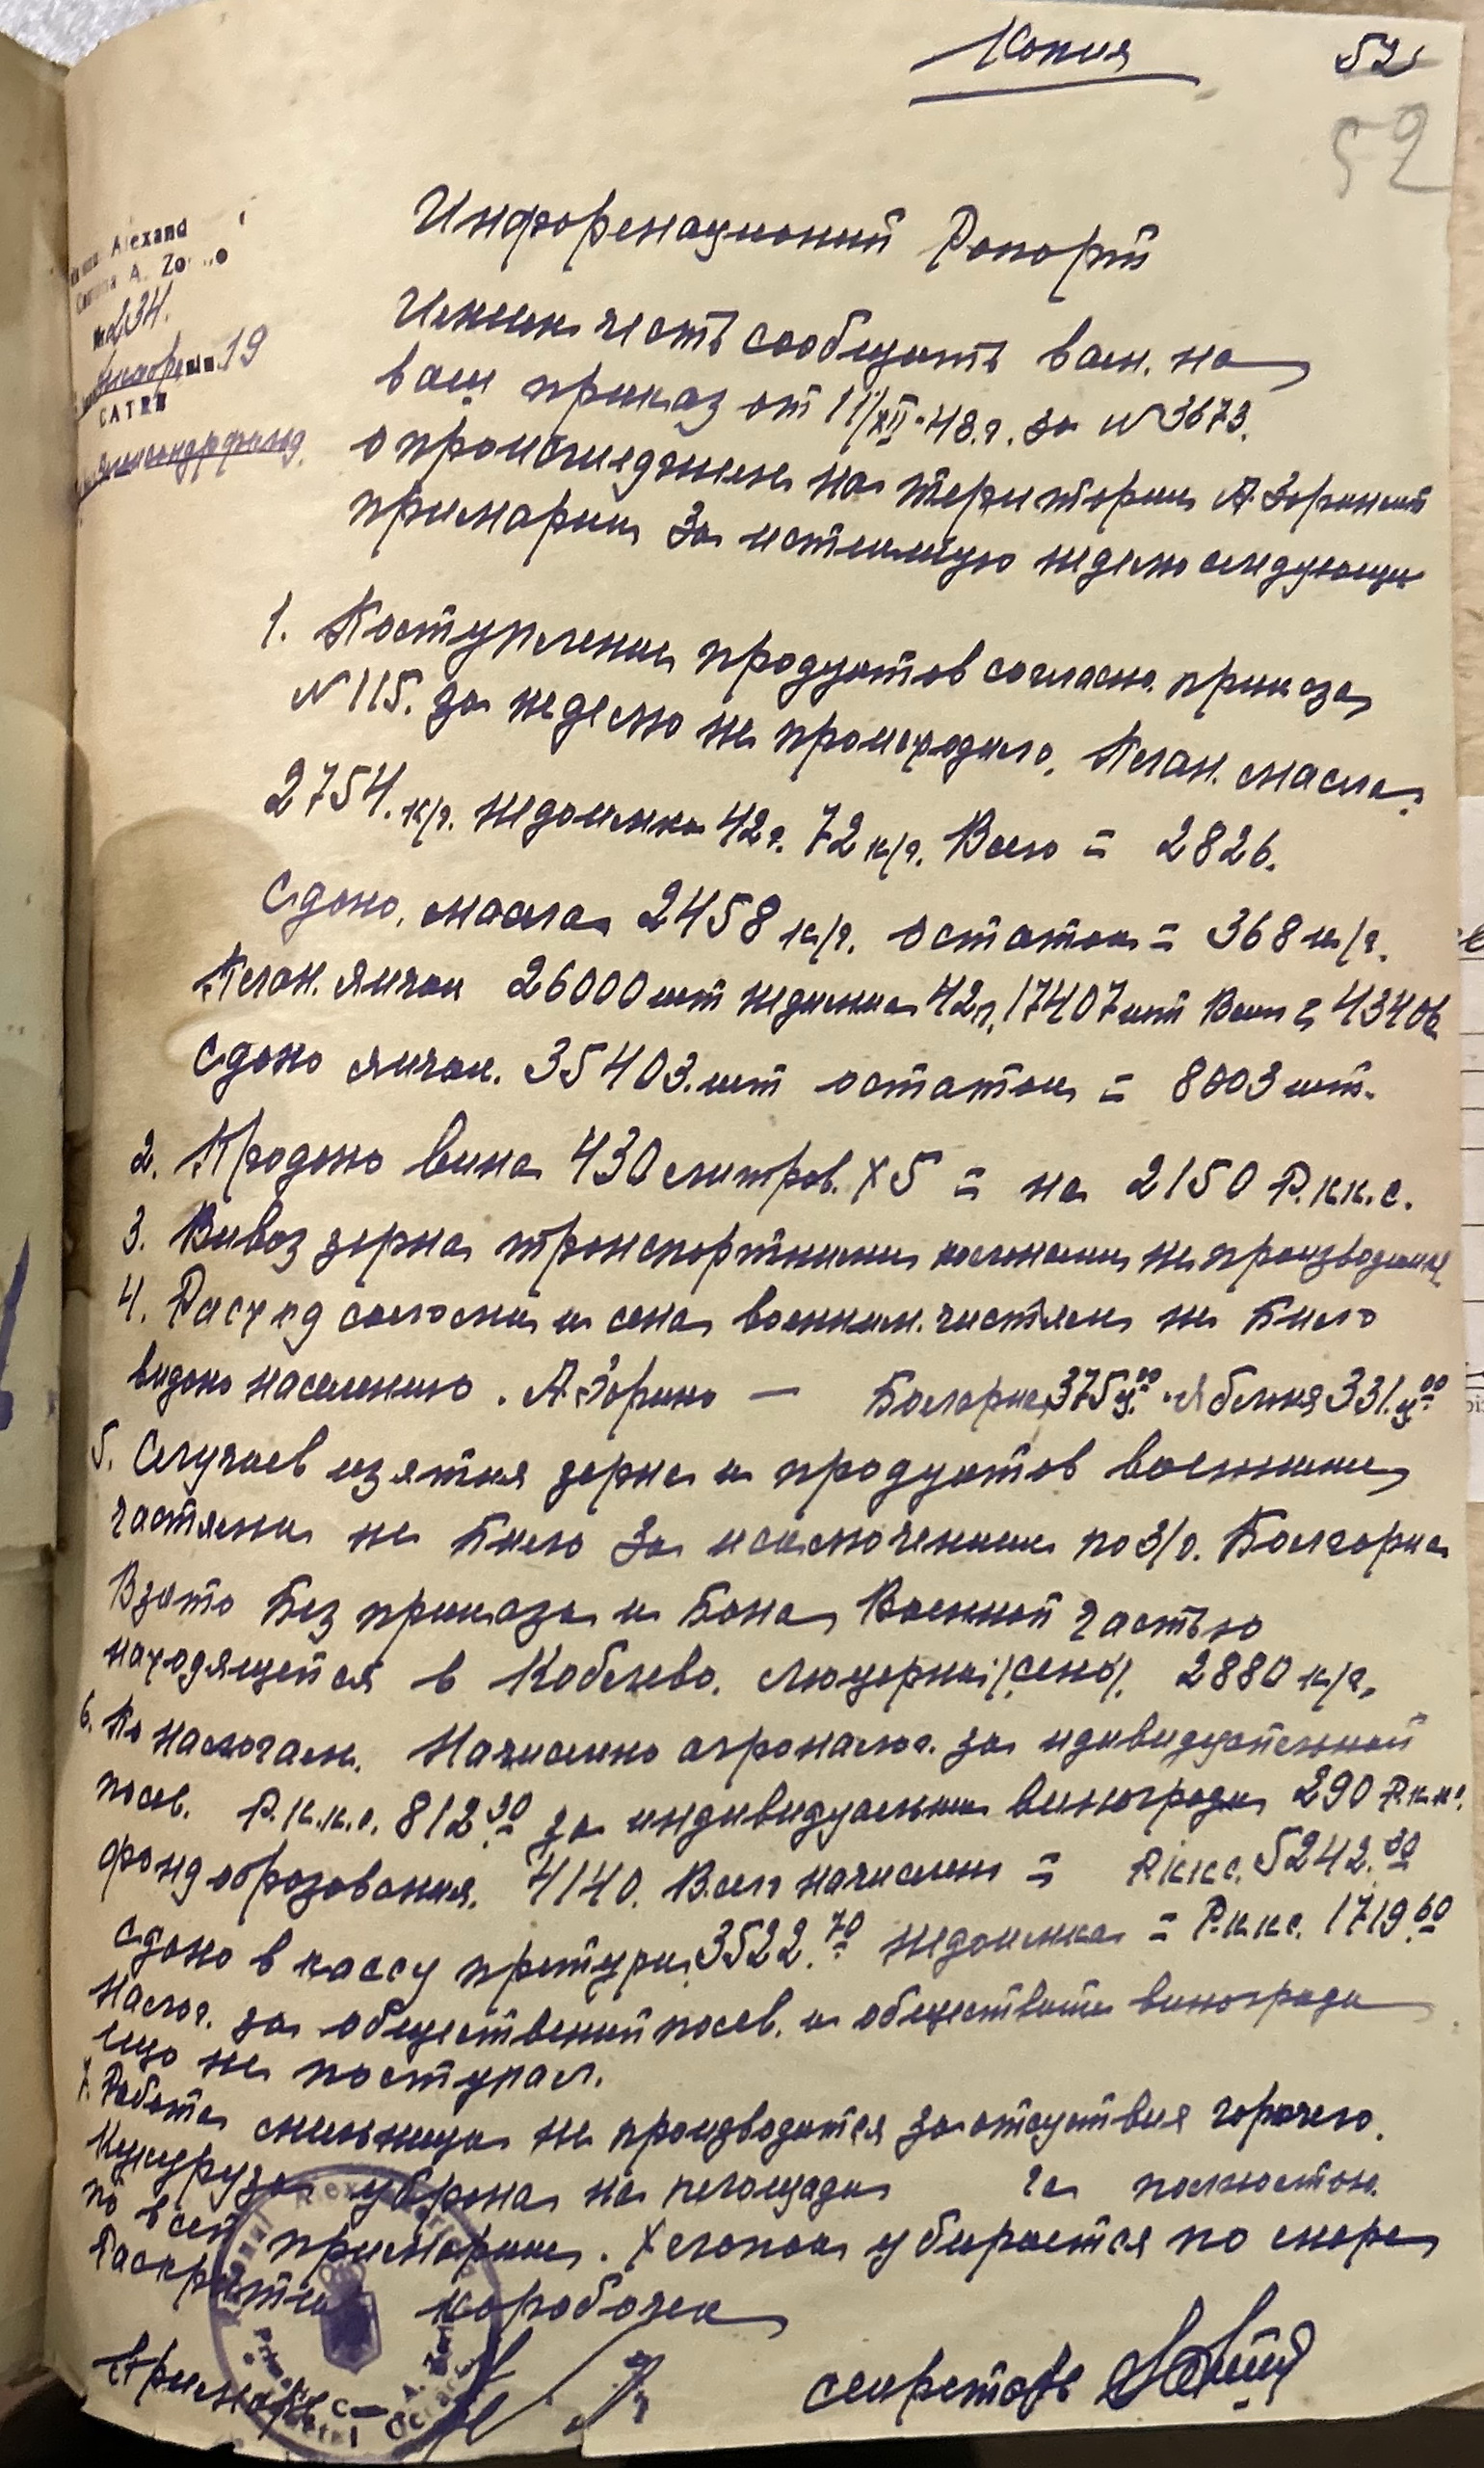 Копия 52
52
Alexand
Comuna A. Zo
№ 234.
19
SATRE
Александрфельд.
Информационий Рапорт
Имеем честь сообщить вам. на
ваш приказ от 11/XII-43.г. за № 3673.
о происшедшем на територии А. Зоринской
примарии за истекшую неделю следующее
1. Поступление продуктов согласно приказа
№ 115. за неделю не происходило. План. масла
2754. к/г. недоимка 42г. 72 к/г. Всего = 2826.
Сдано. масла 2458 к/г. остаток = 368 к/г.
План. яичек 26000 шт недоимка 42г. 17407 шт Всего = 43406
Сдано яичек. 35403. шт остаток = 8003 шт.
2. Продано вина 430 литров. х 5 = на 2150 Р.к.к.с.
3. Вивоз зерна транспортними колонами не производился
4. Расход соломи и сена военним. частям не било
видано населению. А. Зорино — Болгарка 375 ц.00 Яблоня 331. ц00
5. Случаев изятия зерна и продуктов военними
частями не било за исключением по з/о. Болгарка
Взято без приказа и бона Военной частью
находящейся в Коблево. люцерни /сено/. 2880 к/г.
6. По налогам. Начислено агроналог. за идивидуательной
посев. Р.к.к.с. 812.30 за индивидуальни виногради 290 Р.к.к.с.
фонд образования. 4140. Всего начислено = Р.к.к.с. 5242.30
сдано в кассу претури. 3522.70 недоимка = Р.к.к.с. 1719.60
Налог. за общественний посев. и обществени виногради
ищо не поступал.
7. Работа мильница не производится за отсутствия горючего.
Кукуруза убрана на площади га полностю.
по всей примарии. Хлопок убирается по мере
Раскрития коробочек
Примарь секретарь